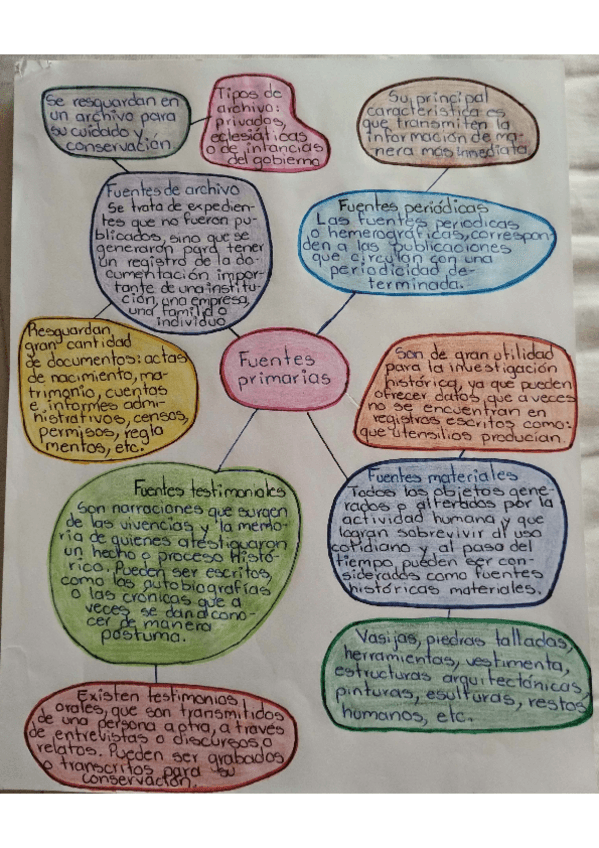 Se resguardan en
un archivo para
su cuidado y
conservación
Tipos de
archivo:
privados,
eclesiáticas
o de intancias
del gobierno
Su principal
característica es
que transmiten la
información de ma-
nera más inmediata
Fuentes de archivo
Se trata de expedien-
tes que no fueron pu-
blicados, sino que se
generaron para tener
un registro de la do-
cumentación impor-
tante de una institu-
ción, una empresa,
una familia o
individuo
Fuentes periódicas
Las fuentes periodicas
o hemerográficas, correspon-
den a las publicaciones
que circulan con una
periodicidad de-
terminada.
Resguardan
gran cantidad
de documentos: actas
de nacimiento, ma-
trimonio, cuentas
e informes admi-
nistrativos, censos,
permisos, regla
mentos, etc.
Fuentes
primarias
Son de gran utilidad
para la investigación
histórica, ya que pueden
ofrecer datos que a veces
no se encuentran en
registros escritos como:
que utensilios producian.
Fuentes testimoniales
Son narraciones que surgen
de las vivencias y la memo-
ria de quienes atestiguaron
un hecho o proceso histó-
rico. Pueden ser escritos,
como las autobiografías
o las crónicas que a
veces se dan a cono-
cer de manera
postuma.
Fuentes materiales
Todos los objetos gene-
rados o alterados por la
actividad humana y que
logran sobrevivir al uso
cotidiano y al paso del
tiempo, pueden ser con-
siderados como fuentes
históricas materiales.
Existen testimonios
orales, que son transmitidos
de una persona a otra, a través
de entrevistas o discursos o
relatos. Pueden ser grabados
o transcritos para su
conservación.
Vasijas, piedras talladas,
herramientas, vestimenta,
estructuras arquitectónicas,
pinturas, esulturas, restos
humanos, etc.